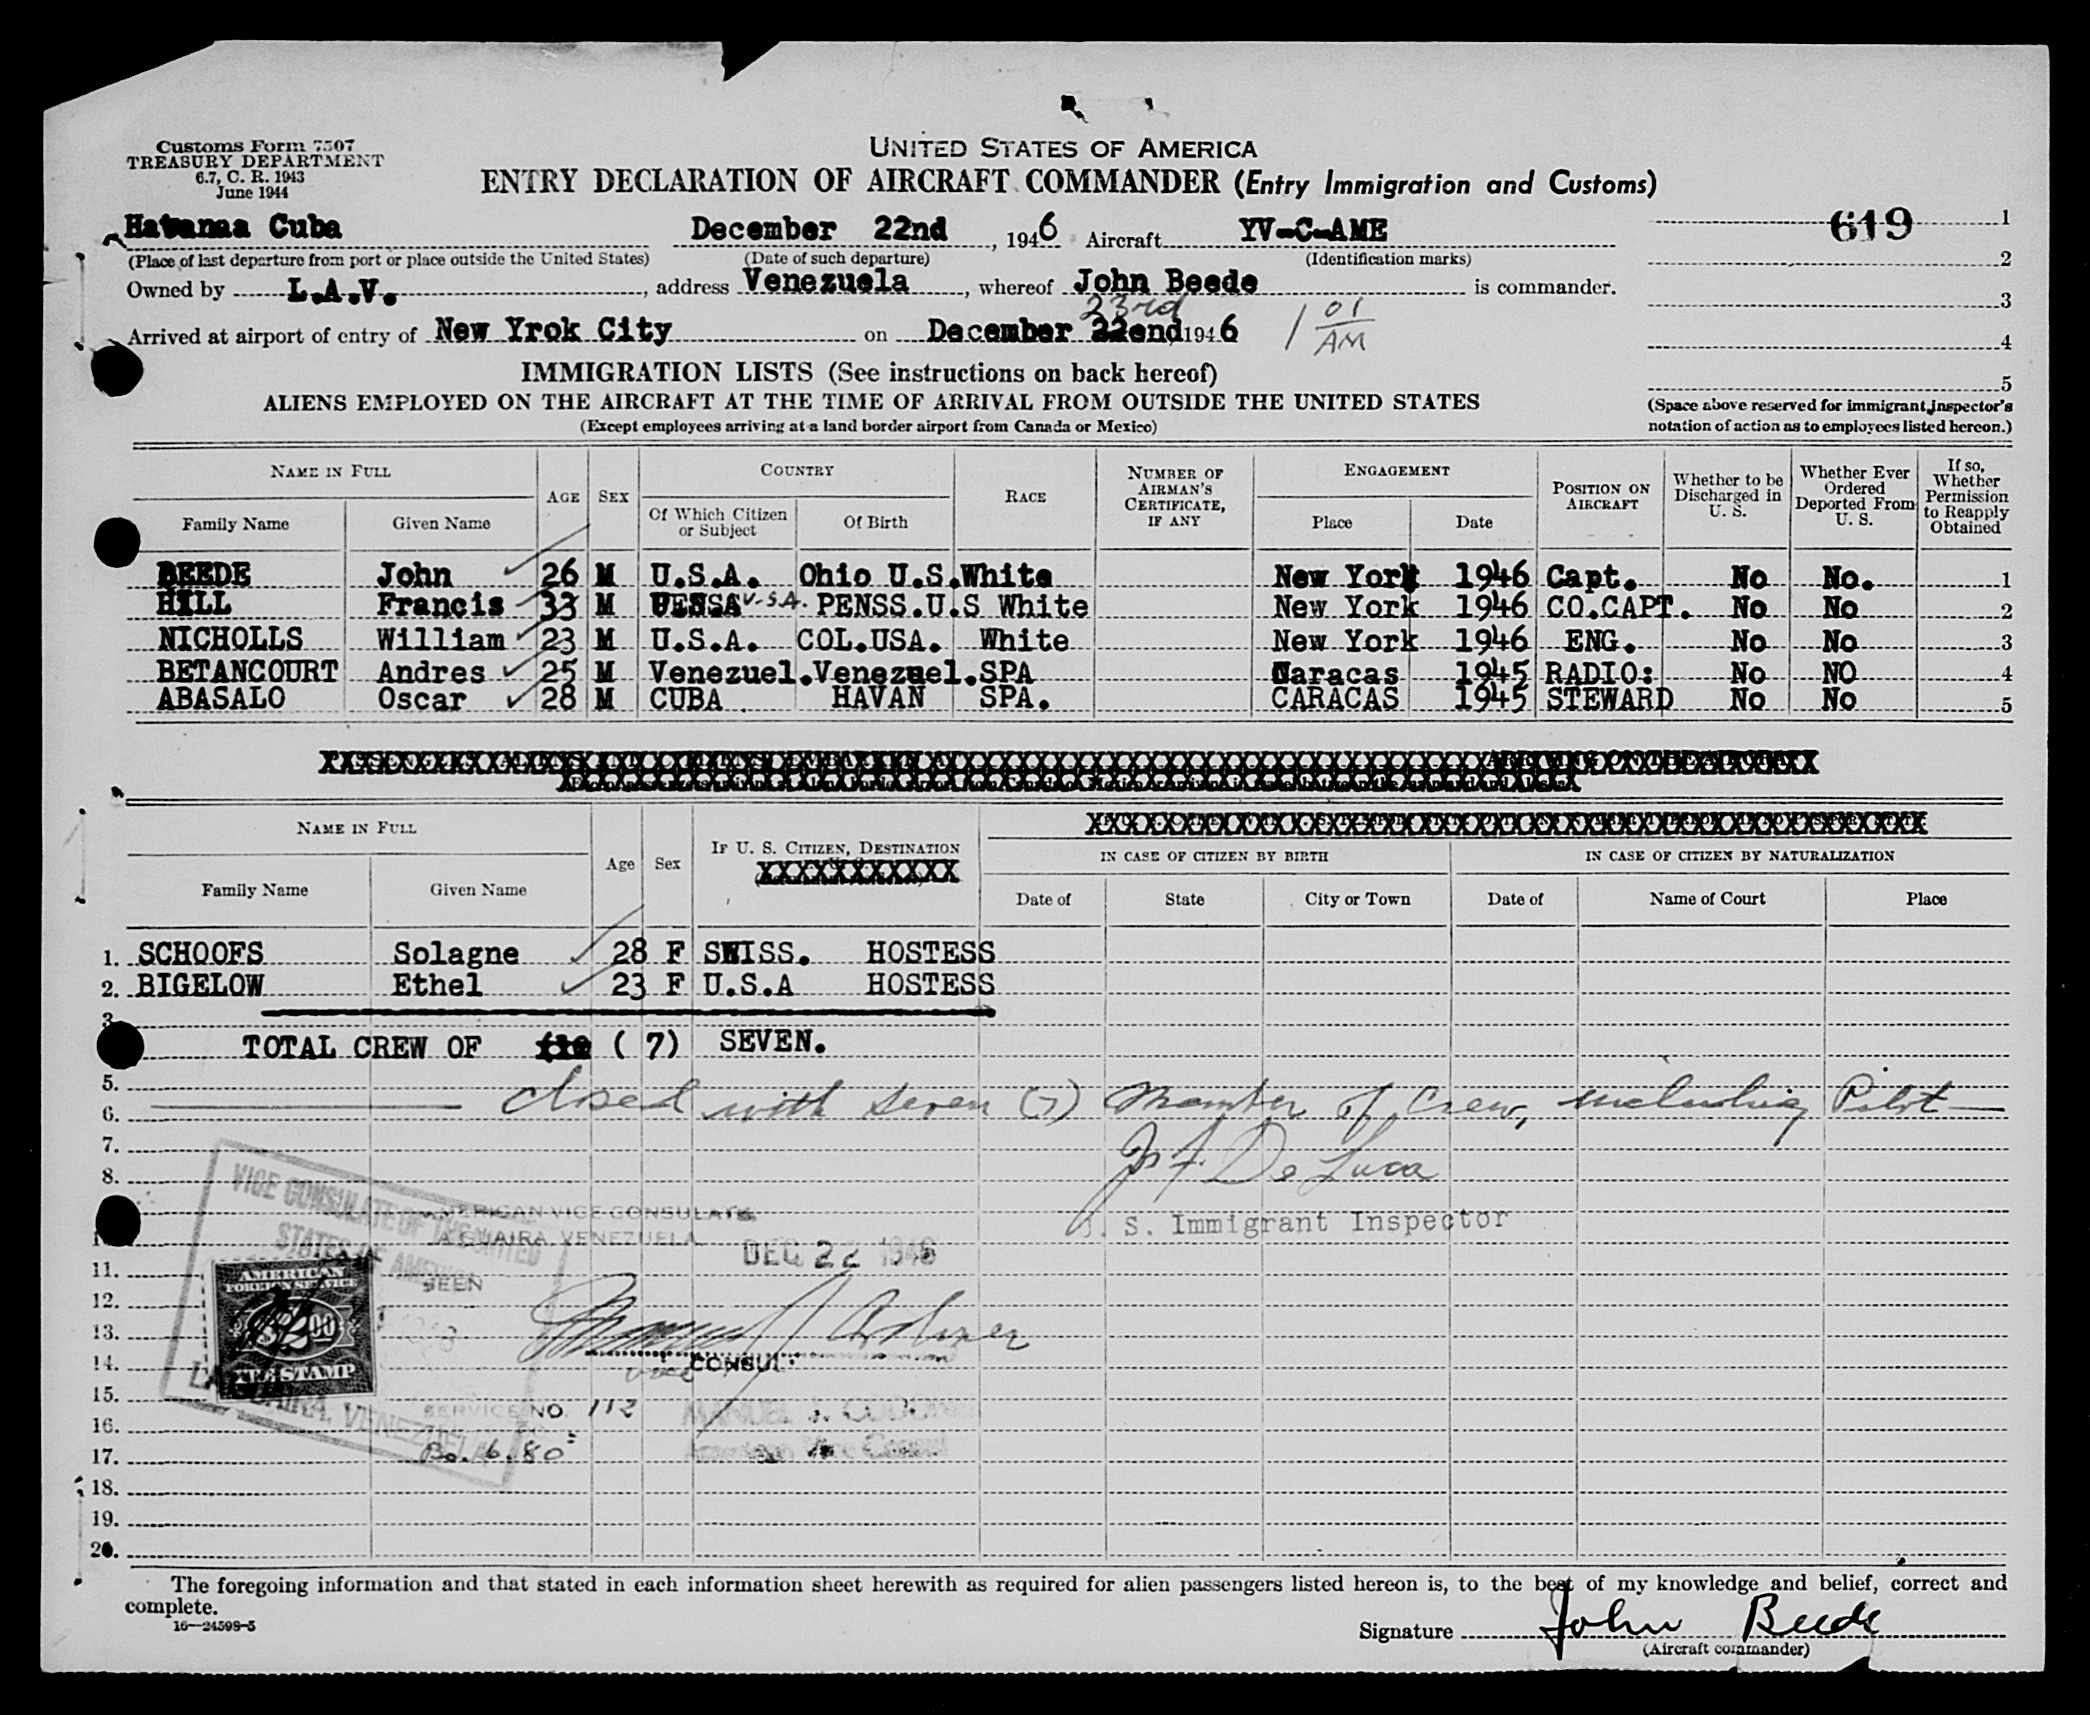 Customs Form 7507
TREASURY DEPARTMENT
6.7, C. R. 1943
June 1944
UNITED STATES OF AMERICA
ENTRY DECLARATION OF AIRCRAFT COMMANDER (Entry Immigration and Customs)
619 1
Havanaa Cuba December 22nd, 1946 Aircraft YV-C-AME
(Place of last departure from port or place outside the United States) (Date of such departure) (Identification marks) 2
Owned by L.A.V., address Venezuela, whereof John Beede is commander. 3
23rd
Arrived at airport of entry of New Yrok City on December 22end 1946 1 01 AM 4
5
IMMIGRATION LISTS (See instructions on back hereof)
ALIENS EMPLOYED ON THE AIRCRAFT AT THE TIME OF ARRIVAL FROM OUTSIDE THE UNITED STATES
(Except employees arriving at a land border airport from Canada or Mexico)
(Space above reserved for immigrant inspector's
notation of action as to employees listed hereon.)
NAME IN FULL AGE SEX COUNTRY RACE NUMBER OF AIRMAN'S CERTIFICATE, IF ANY ENGAGEMENT POSITION ON AIRCRAFT Whether to be Discharged in U. S. Whether Ever Ordered Deported From U. S. If so, Whether Permission to Reapply Obtained
Family Name Given Name Of Which Citizen or Subject Of Birth Place Date
BEEDE John 26 M U.S.A. Ohio U.S. White New York 1946 Capt. No No. 1
HILL Francis 33 M U.S.A. PENSS.U.S White New York 1946 CO.CAPT. No No 2
NICHOLLS William 23 M U.S.A. COL.USA. White New York 1946 ENG. No No 3
BETANCOURT Andres 25 M Venezuel. Venezuel. SPA Caracas 1945 RADIO: No NO 4
ABASALO Oscar 28 M CUBA HAVAN SPA. CARACAS 1945 STEWARD No No 5
NAME IN FULL Age Sex IF U. S. CITIZEN, DESTINATION
IN CASE OF CITIZEN BY BIRTH IN CASE OF CITIZEN BY NATURALIZATION
Family Name Given Name Date of State City or Town Date of Name of Court Place
1. SCHOOFS Solagne 28 F SWISS. HOSTESS
2. BIGELOW Ethel 23 F U.S.A HOSTESS
3
TOTAL CREW OF ( 7) SEVEN.
5.
6. closed with seven (7) Member of Crew, including Pilot
7.
8. De Luca
S. Immigrant Inspector
VICE CONSULATE OF THE UNITED
STATES OF AMERICA
LA GUAIRA, VENEZUELA
AMERICAN VICE CONSULATE
LA GUAIRA, VENEZUELA
DEC 22 1946
SEEN
11.
AMERICAN
FOREIGN SERVICE
$2.00
FEE STAMP
12.
13.
14. vice CONSUL
15.
SERVICE NO. 112
16. MANUEL J.
American Vice Consul
17. Bs. 6.80
18.
19.
20.
The foregoing information and that stated in each information sheet herewith as required for alien passengers listed hereon is, to the best of my knowledge and belief, correct and
complete.
16—24598-5
Signature John Beede
(Aircraft commander)